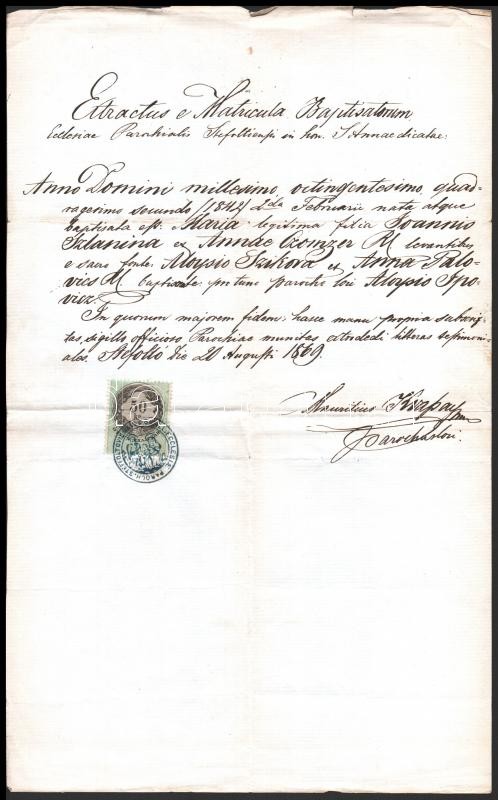 Extractus e Matricula Baptisatorum
Ecclesiae Parochialis in hon. S. Annae dicatae.
Anno Domini millesimo, octingentesimo, quad-
ragesimo secundo /1842/ 2da Februarii nata atque
baptisata est Maria legitima filia Joannis
Szlanina et Annae Czomzer R. levantibus
e sacro fonte: Aloysio Tzikora et Anna Palo-
vics R. Baptisante pro tunc parocho loci Aloysio Ipo-
vicz.
In quorum majorem fidem, hasce manu propria subscrip-
tas, sigillo officioso Parochiae munitas extradedi litteras testimoni-
ales. die 21 Augusti 1869.
Mauritius
parochus loci.
50
ECCLESIE PAROCH.